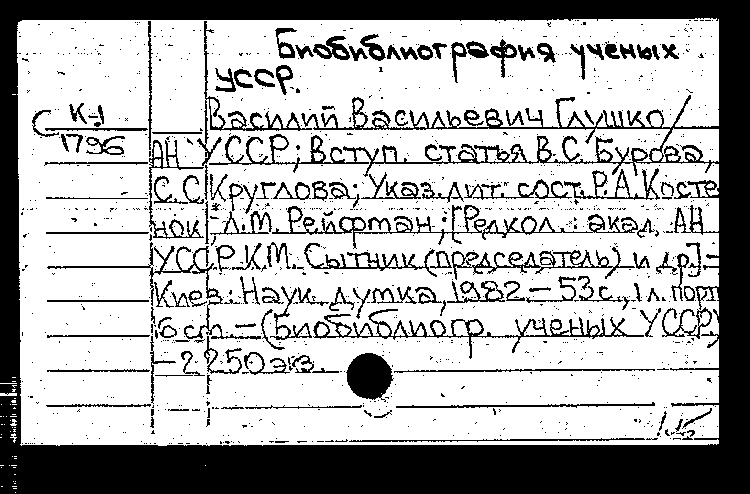 Биобиблиография ученых
УССР.
К-1
1796
Василий Васильевич Глушко/
АН УССР; Вступ. статья В.С. Бурова,
С.С. Круглова; Указ. лит. сост. Р.А. Косте
нок, Л.М. Рейфтман; [Редкол.: акад. АН
УССР К.М. Сытник (председатель) и др.]-
Киев: Наук. думка, 1982.- 53с., 1 л. порт
16 см.-(Биобиблиогр. ученых УССР)
-2250 экз.